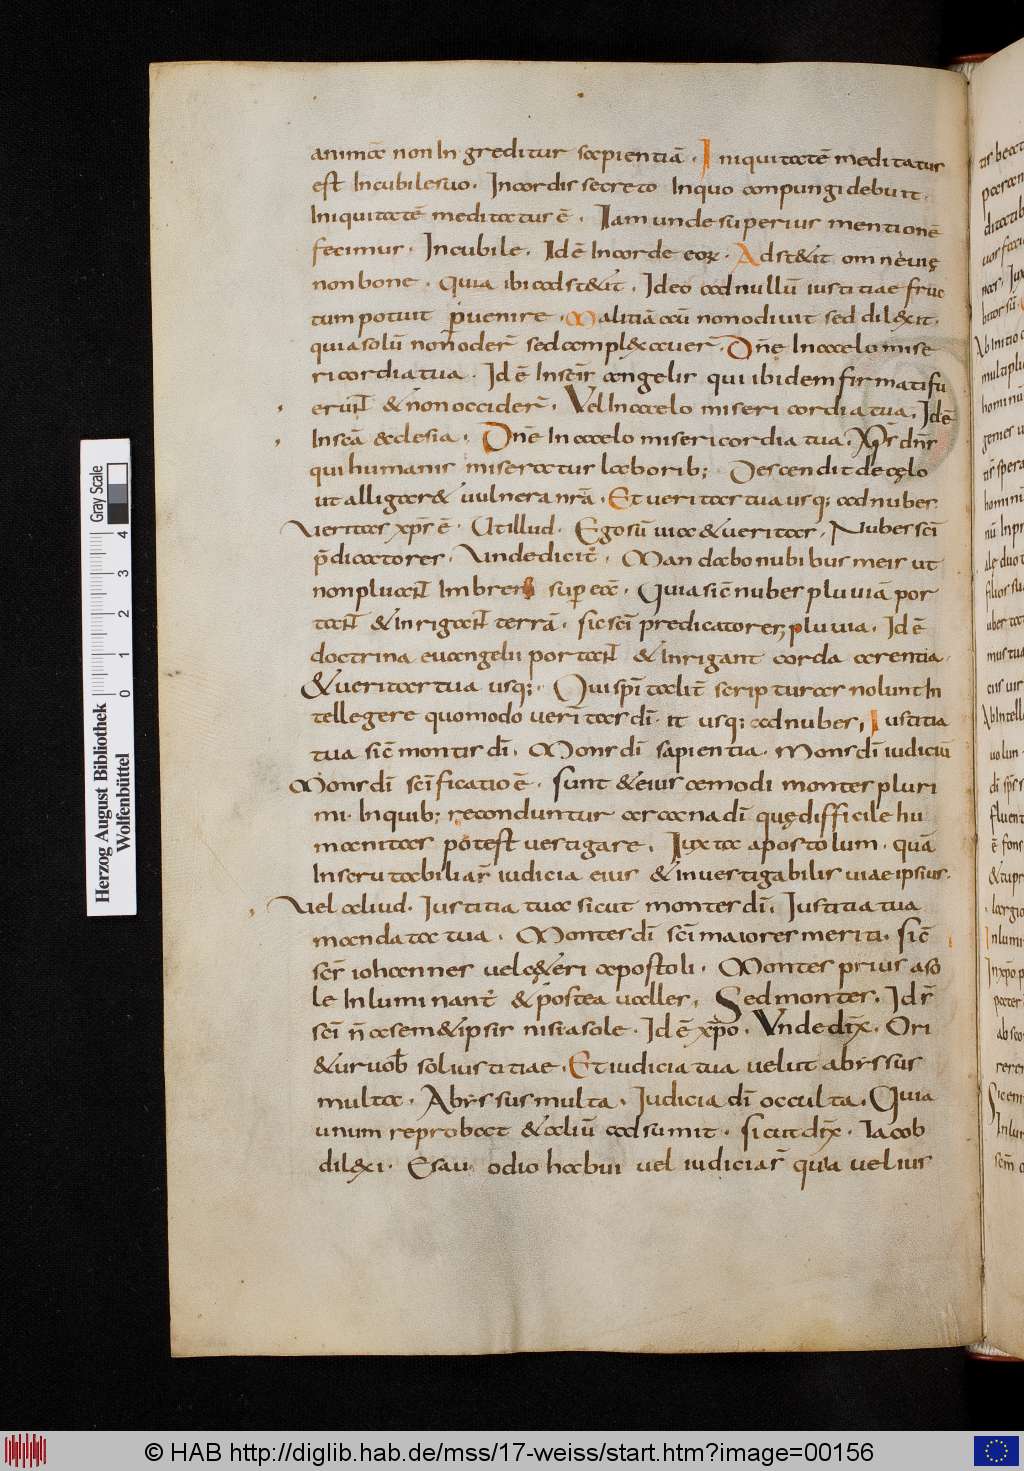 animae non In greditur sapientiā. Iniquitatē meditatur
est Incubilesuo. Incordis secreto Inquo conpungi debuit.
Iniquitatē meditatus ē. Iam unde superius mentionē
fecimus. Incubile. Id ē Incorde eoꝝ. Adst&it omni uię
non bone. Quia ibi adst&it. Ideo ad nullū iustitiae fruc
tum potuit puenire. Malitiā aū non odiuit sed dilexit.
quia solū non oder̄ sed complexauer̄. Dn̄e In caelo mise
ricordia tua. Id ē In scīs angelis qui ibidem firmati fu
erunt & non occider̄. Vel In caelo misericordia tua. Id ē
In scā ecclesia. Dn̄e In caelo misericordia tua. Xp̄s dn̄s
qui humanis miseratur laborib; Descendit de cęlo
ut alligar& uulnera nrā. Et ueritas tua usq; ad nubes
Veritas xp̄s ē. Ut illud. Ego sū uia & ueritas. Nubes scī
p̄dicatores. Unde dicit̄. Mandabo nubibus meis ut
non pluant Imbrem sup eā. Quia sic̄ nubes pluuiā por
tant & Inrigant terrā. sic scī predicatores pluuia. Id ē
doctrina euangelii portant & Inrigant corda arentia.
& ueritas tua usq;. Qui sp̄italit̄ scripturas nolunt In
tellegere quomodo ueritas dī. it usq; ad nubes, Iustitia
tua sic̄ montis dī. Mons dī sapientia. Mons dī iudiciū
Mons dī scīficatio ē. sunt & eius cemodi montes pluri
mi. Inquib; reconduntur arcana dī quę difficile hu
manitas potest uestigare. Iuxta apostolum. quā
Inscrutabilia s̄ iudicia eius & inuestigabilis uiae ipsius.
Vel aliud. Iustitia tua sicut montes dī. Iustitia tua
mandata tua. Montes dī scī maiores meriti. sic̄
scs̄ iohannes uel c&eri apostoli. Montes prius a so
le Inluminant̄ & postea ualles, Sed montes. Id s̄
scī n̄ a sem&ipsis nisi a sole. Id ē xp̄o. Vnde dix̄. Ori
&ur uob̄ sol iustitiae. Et iudicia tua uelut abyssus
multa. Abyssus multa. Iudicia dī occulta. Quia
unum reprobat & aliū adsumit. sicut dix̄. Iacob
dilexi. Esau odio habui uel iudicia s̄ quia uel ius
Herzog August Bibliothek
Wolfenbüttel
Gray Scale
0 1 2 3 4
© HAB http://diglib.hab.de/mss/17-weiss/start.htm?image=00156